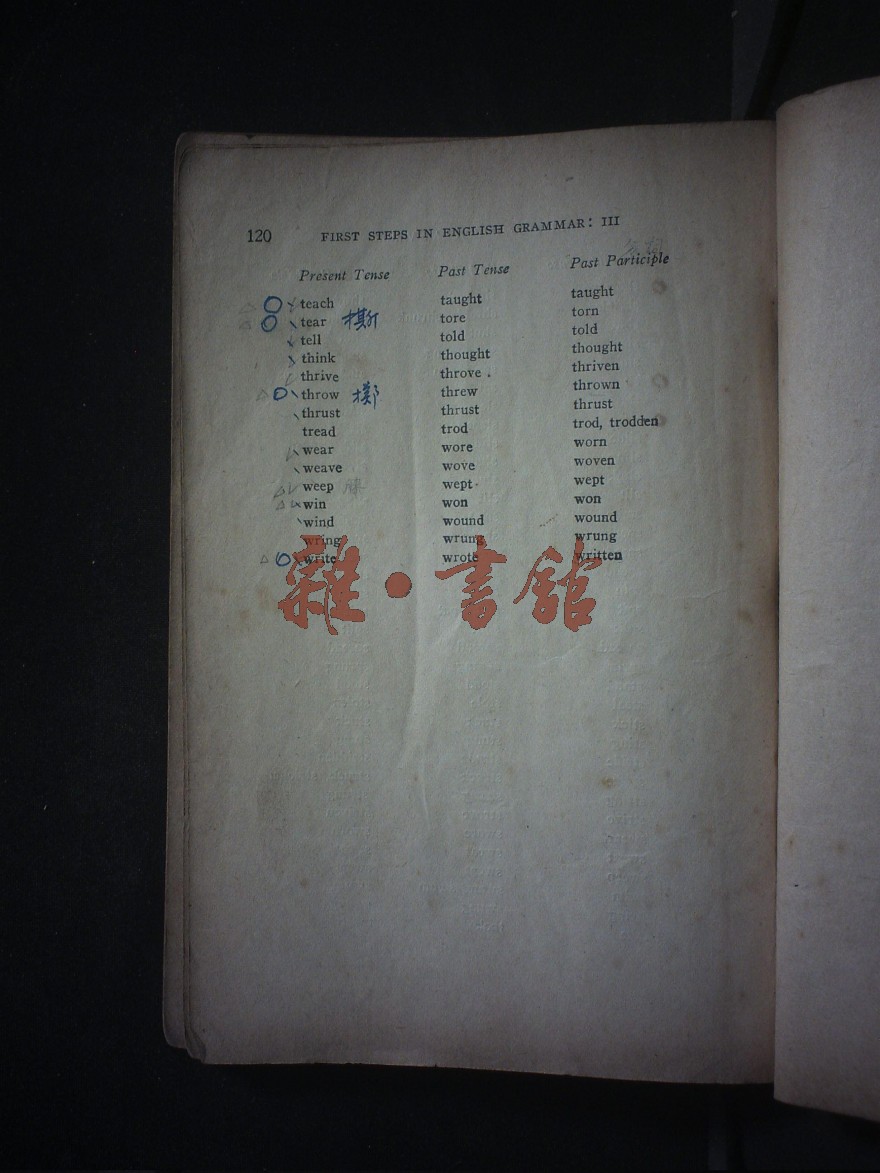 120 FIRST STEPS IN ENGLISH GRAMMAR: III
Present Tense Past Tense Past Participle
teach taught taught
tear 撕 tore torn
tell told told
think thought thought
thrive throve thriven
throw 擲 threw thrown
thrust thrust thrust
tread trod trod, trodden
wear wore worn
weave wove woven
weep wept wept
win won won
wind wound wound
wring wrung wrung
write wrote written
雜·書館